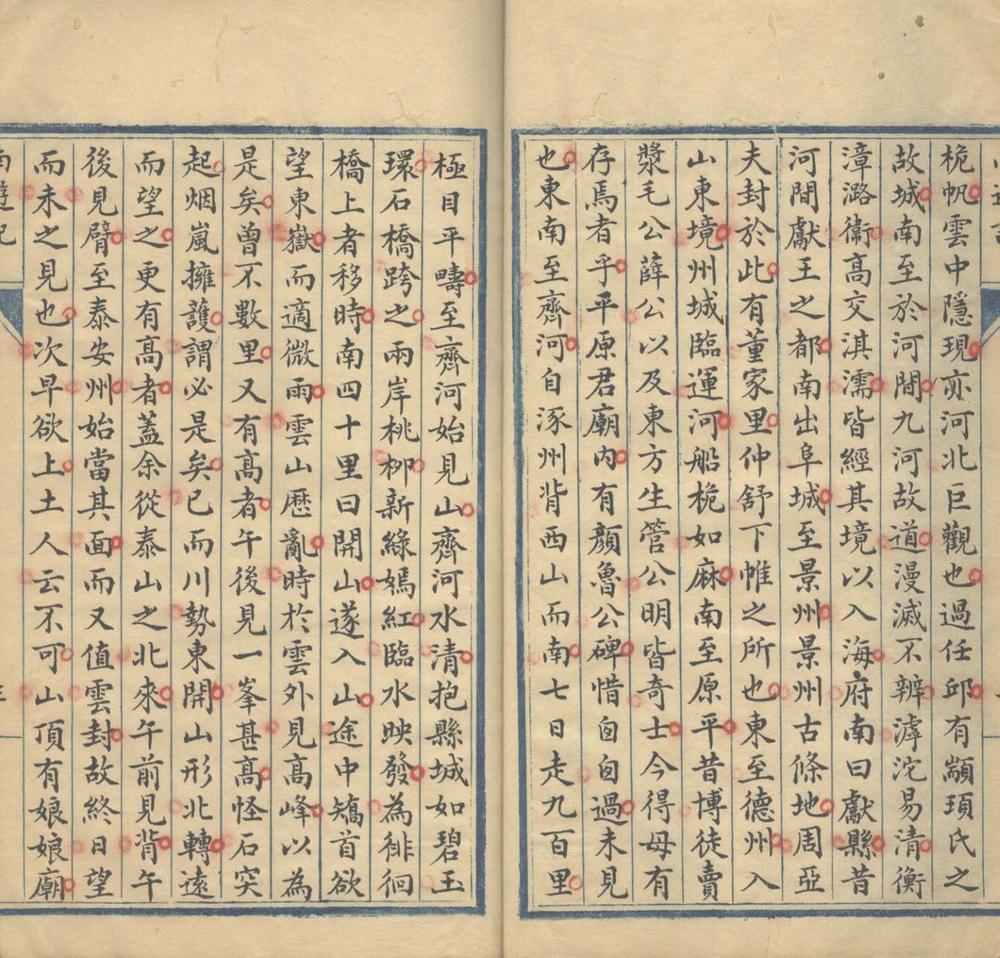 桅帆雲中隱現亦河北巨觀也過任邱有顓頊氏之
故城南至於河間九河故道漫滅不辨滹沱易清衡
漳潞衞高交淇濡皆經其境以入海府南曰獻縣昔
河間獻王之都南出阜城至景州景州古條地周亞
夫封於此有董家里仲舒下帷之所也東至德州入
山東境州城臨運河船桅如麻南至原平昔博徒賣
漿毛公薛公以及東方生管公明皆奇士今得毋有
存焉者乎平原君廟內有顏魯公碑惜匆匆過未見
也東南至齊河自涿州背西山而南七日走九百里
極目平疇至齊河始見山齊河水清抱縣城如碧玉
環石橋跨之兩岸桃柳新綠嫣紅臨水映發為徘徊
橋上者移時南四十里曰開山遂入山途中矯首欲
望東嶽而適微雨雲山歷亂時於雲外見高峰以為
是矣曾不數里又有高者午後見一峯甚高怪石突
起烟嵐擁護謂必是矣已而川勢東開山形北轉遠
而望之更有高者蓋余從泰山之北來午前見背午
後見臂至泰安州始當其面而又值雲封故終日望
而未之見也次早欲上土人云不可山頂有娘娘廟
南遊記